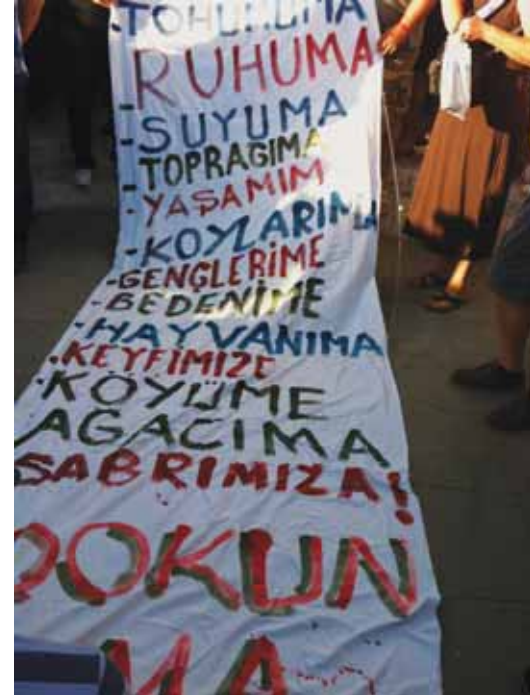 -TOHUMUMA
-RUHUMA
-SUYUMA
-TOPRAGIMA
-YAŞAMIM
-KOYLARIMA
-GENÇLERİME
-BEDENİME
-HAYVANIMA
-KEYFİMİZE
-KÖYÜME
AGACIMA
SABRIMIZA!
DOKUN
MA